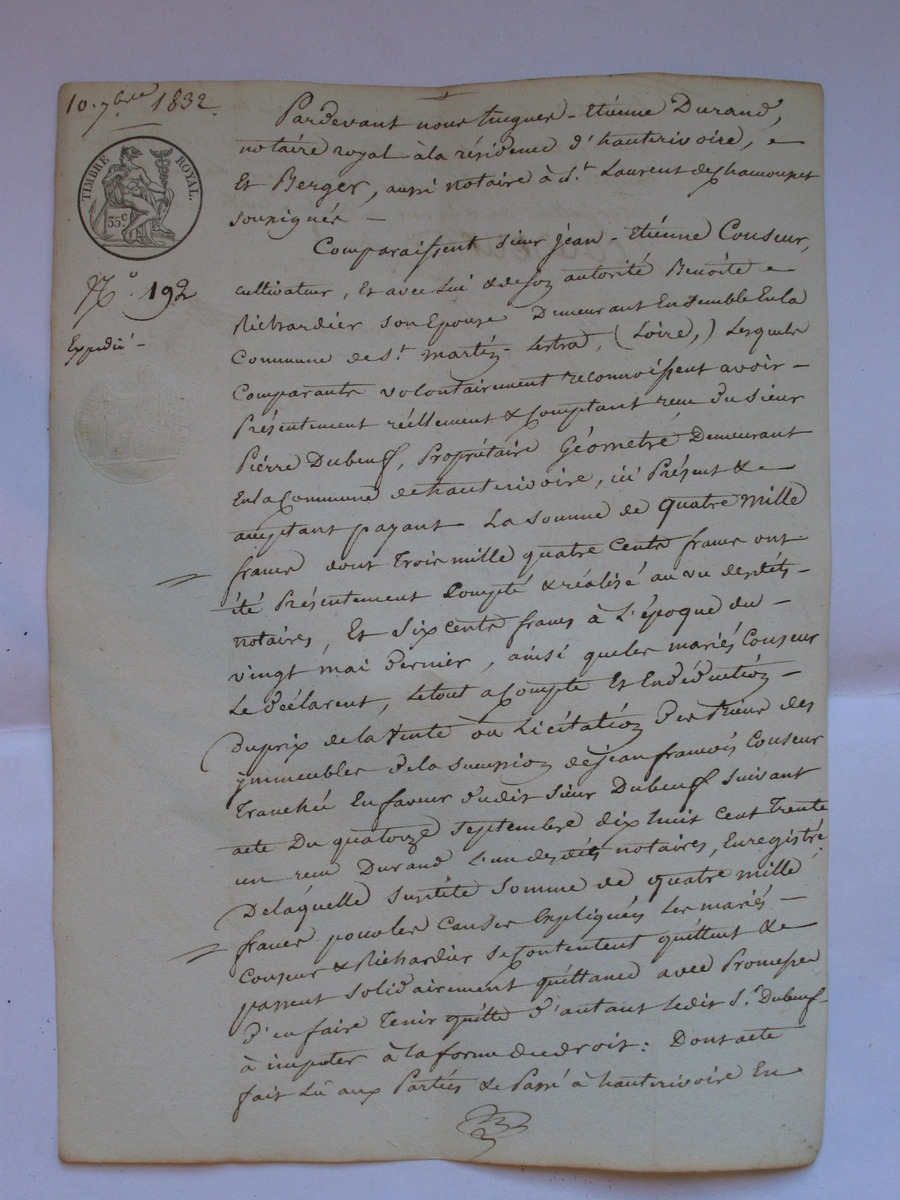 10. 7bre 1832.
TIMBRE ROYAL.
35 c
N.o 192
Expedié -
Pardevant nous hugues - Etienne Durand,
notaire royal à la résidence d'hauterivoire,
Et Berger, aussi notaire à St. Laurent de chamousset
soussignés -
Comparaissent sieur jean - Etiénne Couseur,
cultivateur, Et avec Lui & de son autorité Benoîte
Richardier son Epouse Demeurant Ensemble En la
Commune de St. martin - Lestra, (Loire,) Lesquels
Comparants volontairement reconnoissent avoir -
Présentement réellement & Comptant reçu du sieur
Piérre Dubeuf, Propriétaire Géometre Demeurant
En la Commune de hauterivoire, ici Présent &
acceptant payant La somme de quatre mille
francs dont Trois mille quatre cents francs ont
été Présentement Compté & réalisé au vu des dits -
notaires, Et Six cents francs à L'époque du -
vingt mai Dernier, ainsi que les mariés Couseur
Le Déclarent, Le tout acompte Et En déduction -
Du prix de la vente ou Licitation des
jmmeubles De la succession de jean francois Couseur
Tranchée En faveur dudit sieur Dubeuf suivant
acte Du quatorze septembre dix huit cent Trente
un reçu Durand L'un des dits notaires, Enregistré.
De laquelle susdite Somme de quatre mille
francs pour les Causes Expliquées Les mariés -
Couseur & Richardier se Contentent quittent &
passent solidairement quittance avec Promesse
D'en faire Tenir quitte d'autant Ledit Sr. Dubeuf -
à imputer à la forme du droit : Dont acte
fait Lu aux Parties & Passé à hauterivoire En